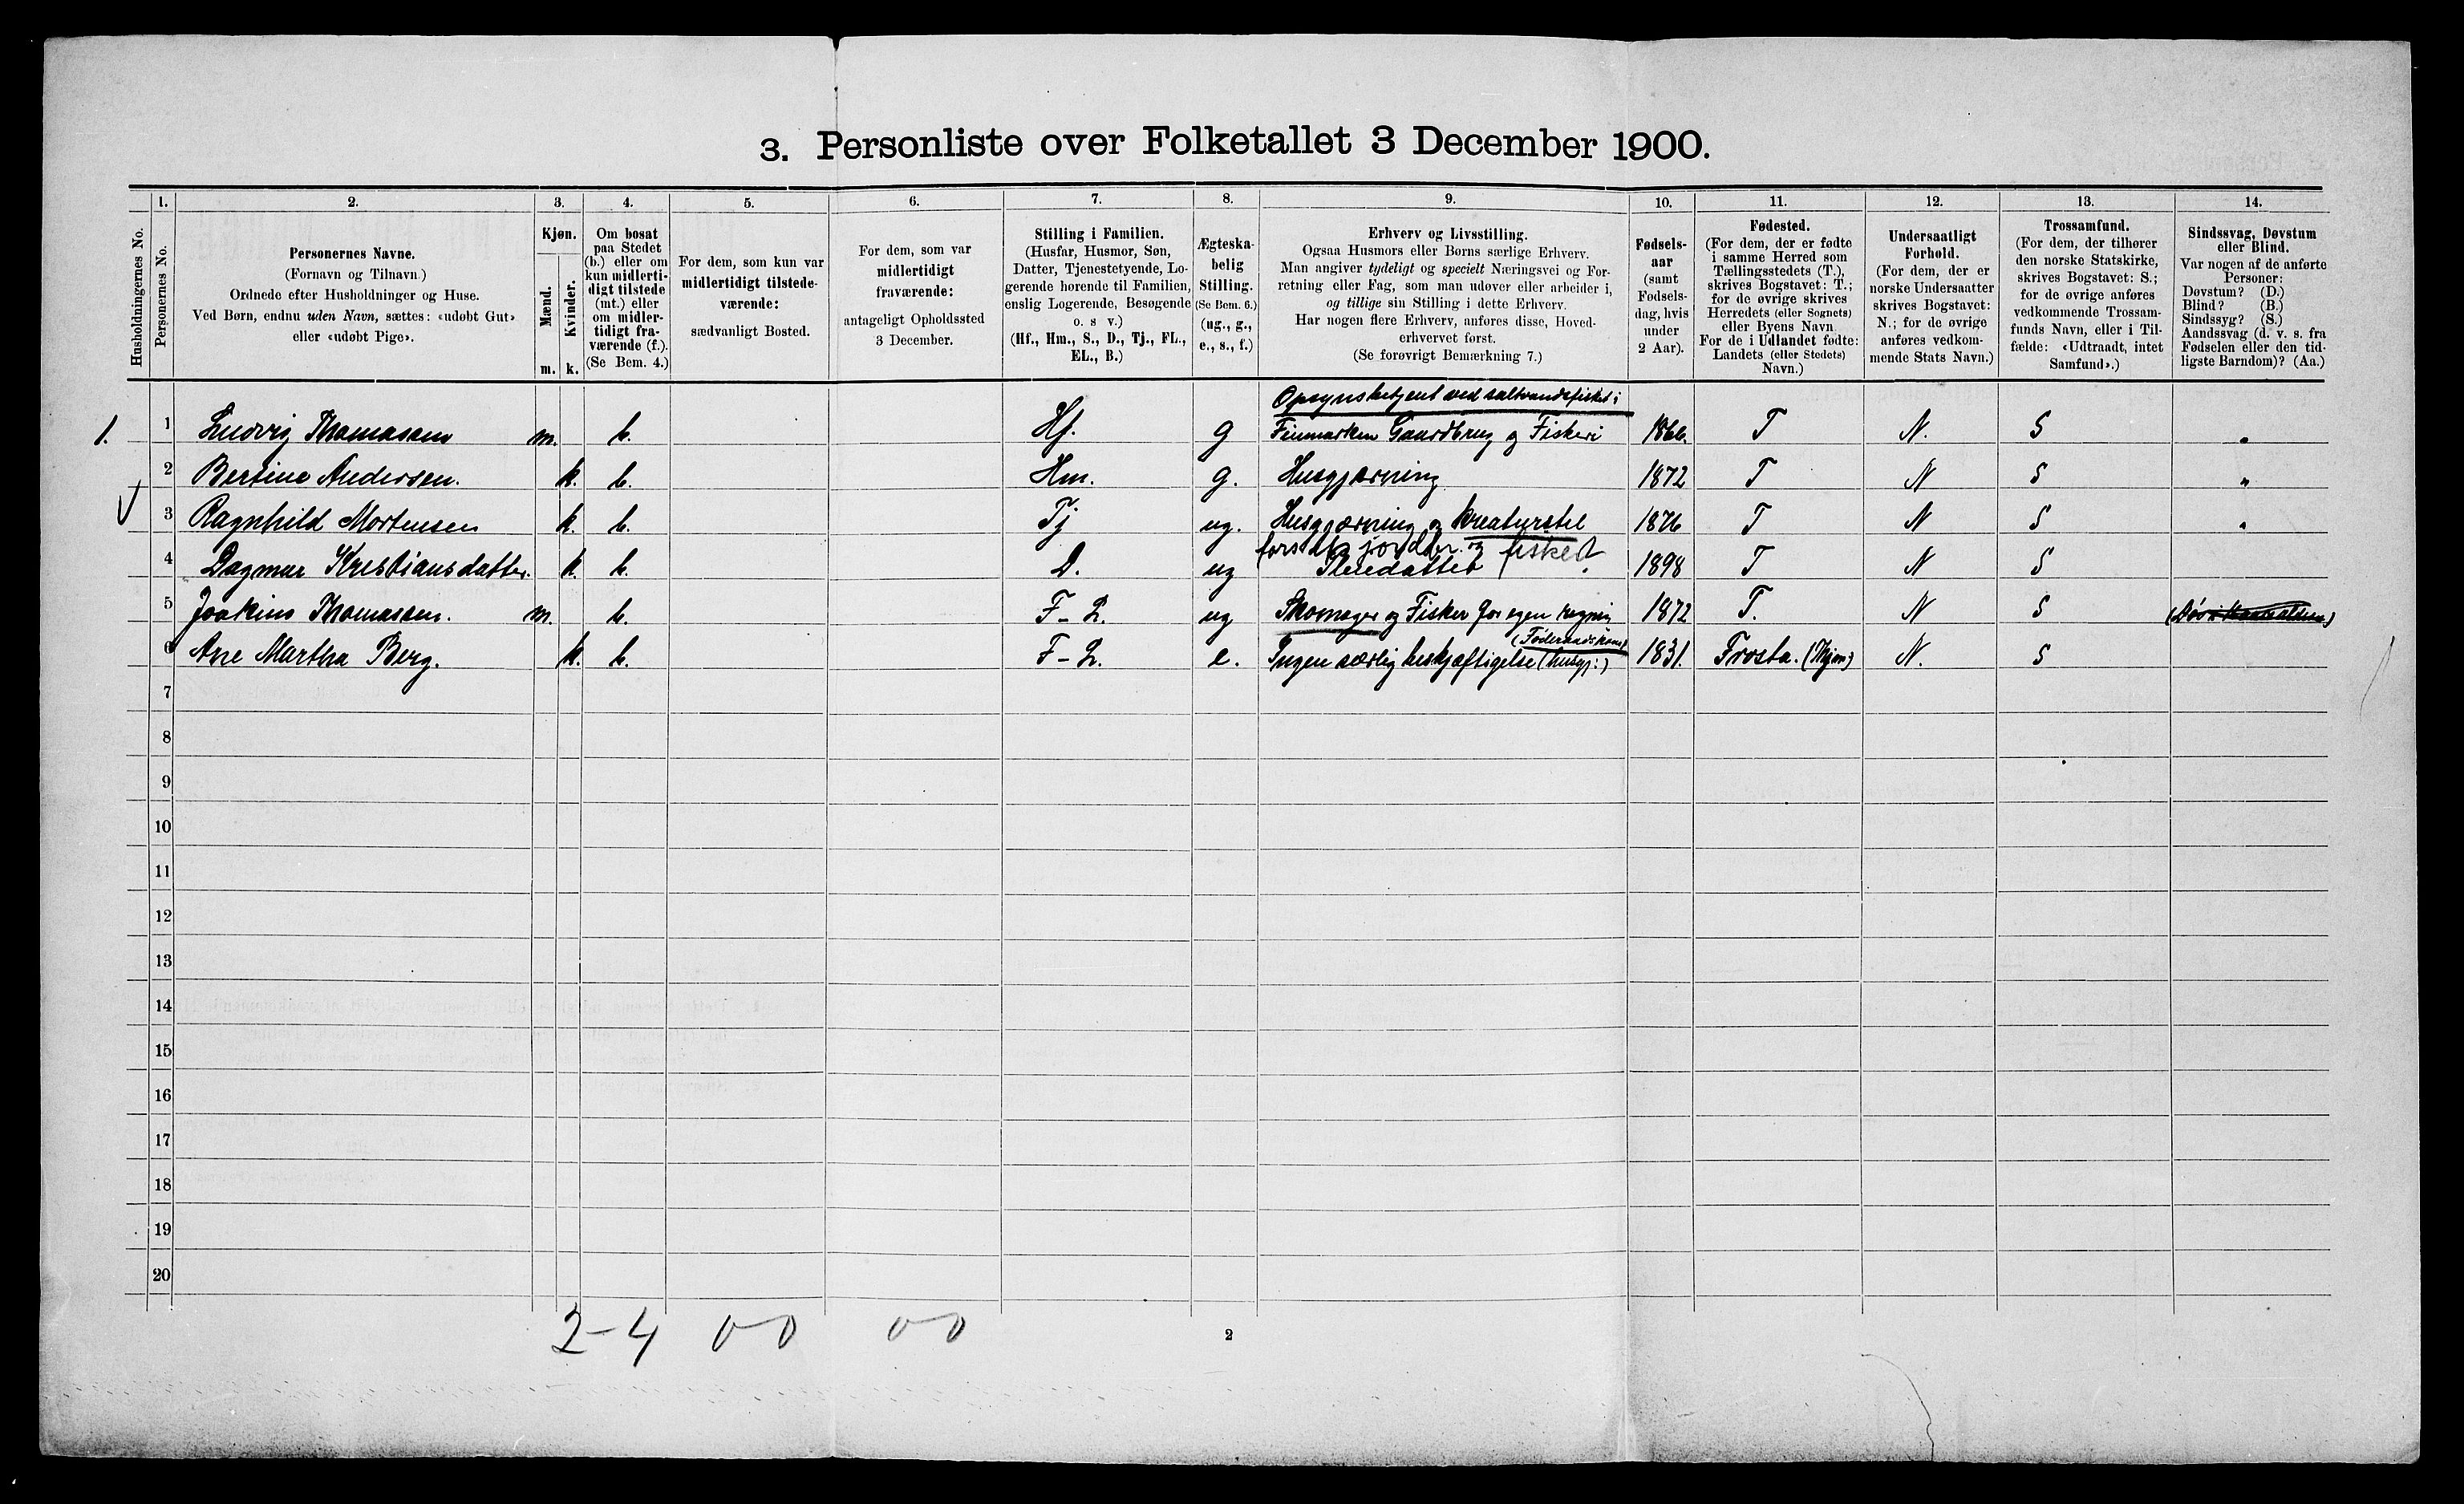 3. Personliste over Folketallet 3 December 1900.
Husholdningernes No.
1.
Personernes No.
2.
Personernes Navne.
(Fornavn og Tilnavn.)
Ordnede efter Husholdninger og Huse.
Ved Børn, endnu uden Navn, sættes: «udøbt Gut»
eller «udøbt Pige».
3.
Kjøn.
Mænd.
Kvinder.
m. k.
4.
Om bosat
paa Stedet
(b.) eller om
kun midlerti-
digt tilstede
(mt.) eller
om midler-
tidigt fra-
værende (f.).
(Se Bem. 4.)
5.
For dem, som kun var
midlertidigt tilstede-
værende:
sædvanligt Bosted.
6.
For dem, som var
midlertidigt
fraværende:
antageligt Opholdssted
3 December.
7.
Stilling i Familien.
(Husfar, Husmor, Søn,
Datter, Tjenestetyende, Lo-
gerende hørende til Familien,
enslig Logerende, Besøgende
o. s v.)
(Hf., Hm., S., D., Tj., FL.,
EL., B.)
8.
Ægteska-
belig
Stilling.
(Se Bem. 6.)
(ug., g.,
e., s., f.)
9.
Erhverv og Livsstilling.
Ogsaa Husmors eller Børns særlige Erhverv.
Man angiver tydeligt og specielt Næringsvei og For-
retning eller Fag, som man udøver eller arbeider i,
og tillige sin Stilling i dette Erhverv.
Har nogen flere Erhverv, anføres disse, Hoved-
erhvervet først.
(Se forøvrigt Bemærkning 7.)
10.
Fødsels-
aar
(samt
Fødsels-
dag, hvis
under
2 Aar).
11.
Fødested.
(For dem, der er fødte
i samme Herred som
Tællingsstedets (T.),
skrives Bogstavet: T.;
for de øvrige skrives
Herredets (eller Sognets)
eller Byens Navn
For de i Udlandet fødte:
Landets (eller Stedets)
Navn.)
12.
Undersaatligt
Forhold.
(For dem, der er
norske Undersaatter
skrives Bogstavet:
N.; for de øvrige
anføres vedkom-
mende Stats Navn.)
13.
Trossamfund.
(For dem, der tilhører
den norske Statskirke,
skrives Bogstavet: S.;
for de øvrige anføres
vedkommende Trossam-
funds Navn, eller i Til-
fælde: «Udtraadt, intet
Samfund».)
14.
Sindssvag, Døvstum
eller Blind.
Var nogen af de anførte
Personer:
Døvstum? (D.)
Blind? (B.)
Sindssyg? (S.)
Aandssvag (d. v. s. fra
Fødselen eller den tid-
ligste Barndom)? (Aa.)
Opsynsbetjent ved saltvandsfisket i
1. 1 Ludvig Thomassen m. b. Hf. g Finmarken Gaardbrug og Fiskeri 1866. T N. S "
2 Bertine Andersen. k. b. Hm. g. Husgjærning 1872 T N S "
3 Ragnhild Mortensen k. b. Tj ug. Husgjærning og kreaturstel 1876 T N S "
jordbr. og fisker
4 Dagmar Kristiansdatter. k. b. D. ug Pleiedatter 1898 T N S
5 Joakim Thomassen. m. b. F-L. ug Skomager og Fisker for egen regning 1872 T. N S
(Føderaadskone)
6 Ane Martha Berg. k. b. F-L. e. Ingen særlig beskjæftigelse (husgj:) 1831. Frosta. N. S
7
8
9
10
11
12
13
14
15
16
17
18
19
20
2-4 0-0 0-0
2